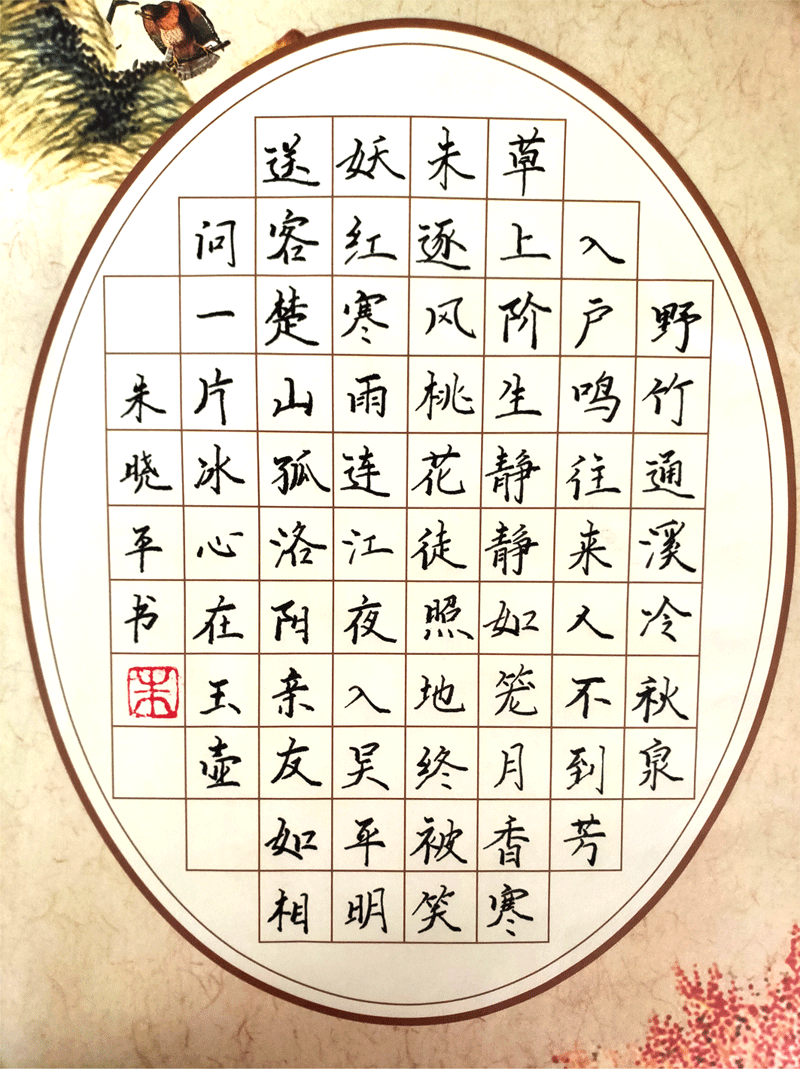 野竹通溪冷秋泉
入户鸣往来人不到芳
草上阶生静静如笼月香寒
未逐风桃花徒照地终被笑
妖红寒雨连江夜入吴平明
送客楚山孤洛阳亲友如相
问一片冰心在玉壶
朱晓平书
朱